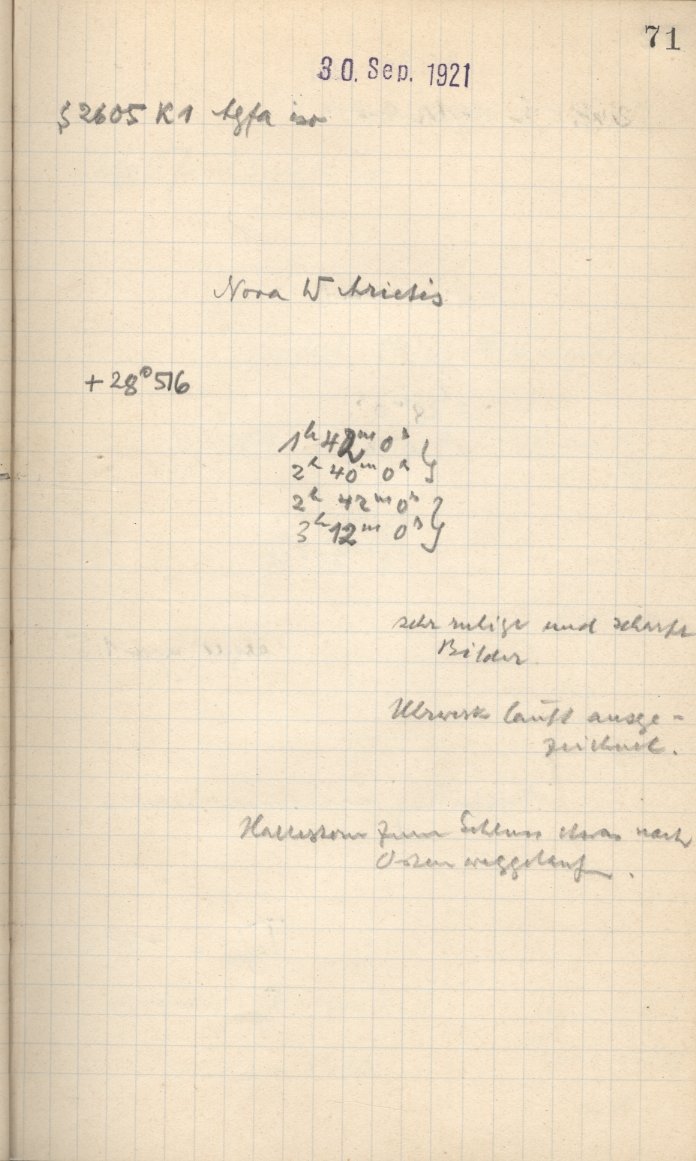 71
30. Sep. 1921
S 2605 K1 Agfa iso
Nova W Arietis
+28° 516
1h 42m 0s }
2h 40m 0s }
2h 42m 0s }
3h 12m 0s }
sehr ruhige und scharfe
Bilder.
Uhrwerk läuft ausge-
zeichnet.
Haltestern zum Schluss etwas nach
Osten weggelaufen.